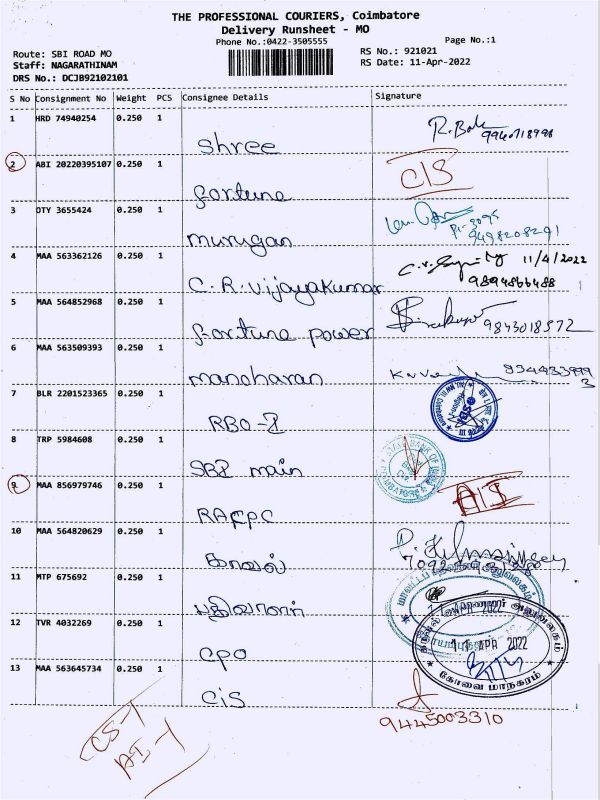 THE PROFESSIONAL COURIERS, Coimbatore
Delivery Runsheet - MO
Phone No.:0422-3505555
Page No.:1
Route: SBI ROAD MO
RS No.: 921021
Staff: NAGARATHINAM
RS Date: 11-Apr-2022
DRS No.: DCJB92102101
S No Consignment No Weight PCS Consignee Details Signature
1 HRD 74940254 0.250 1
shree
2 ABI 20220395107 0.250 1
C/S
fortune
3 OTY 3655424 0.250 1
9498208291
murugan
4 MAA 563362126 0.250 1
11/4/2022
9894866488
C.R.vijayakumar
5 MAA 564852968 0.250 1
9843018572
fortune power
6 MAA 563509393 0.250 1
manoharan
7 BLR 2201523365 0.250 1
RBO-I
8 TRP 5984608 0.250 1
SBI main
9 MAA 856979746 0.250 1
A/I
RACPC
10 MAA 564820629 0.250 1
காவல்
11 MTP 675692 0.250 1
பதிவாளர்
12 TVR 4032269 0.250 1
11 APR 2022
கோவை மாநகரம்
CPO
13 MAA 563645734 0.250 1
CIS
9445003310
CS-1
AI-1